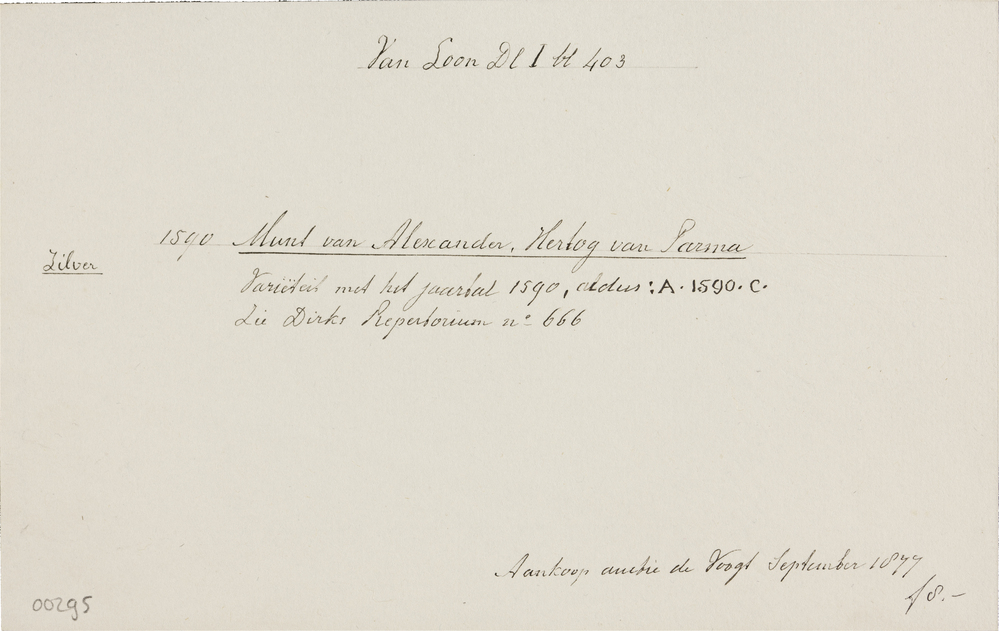 Van Loon Dl I bl 403
1590 Munt van Alexander, Hertog van Parma
Zilver
Variëteit met het jaartal 1590, aldus: A. 1590. C.
Zie Dirks Repertorium no 666
Aankoop auctie de Voogt September 1877
f 8.-
00295